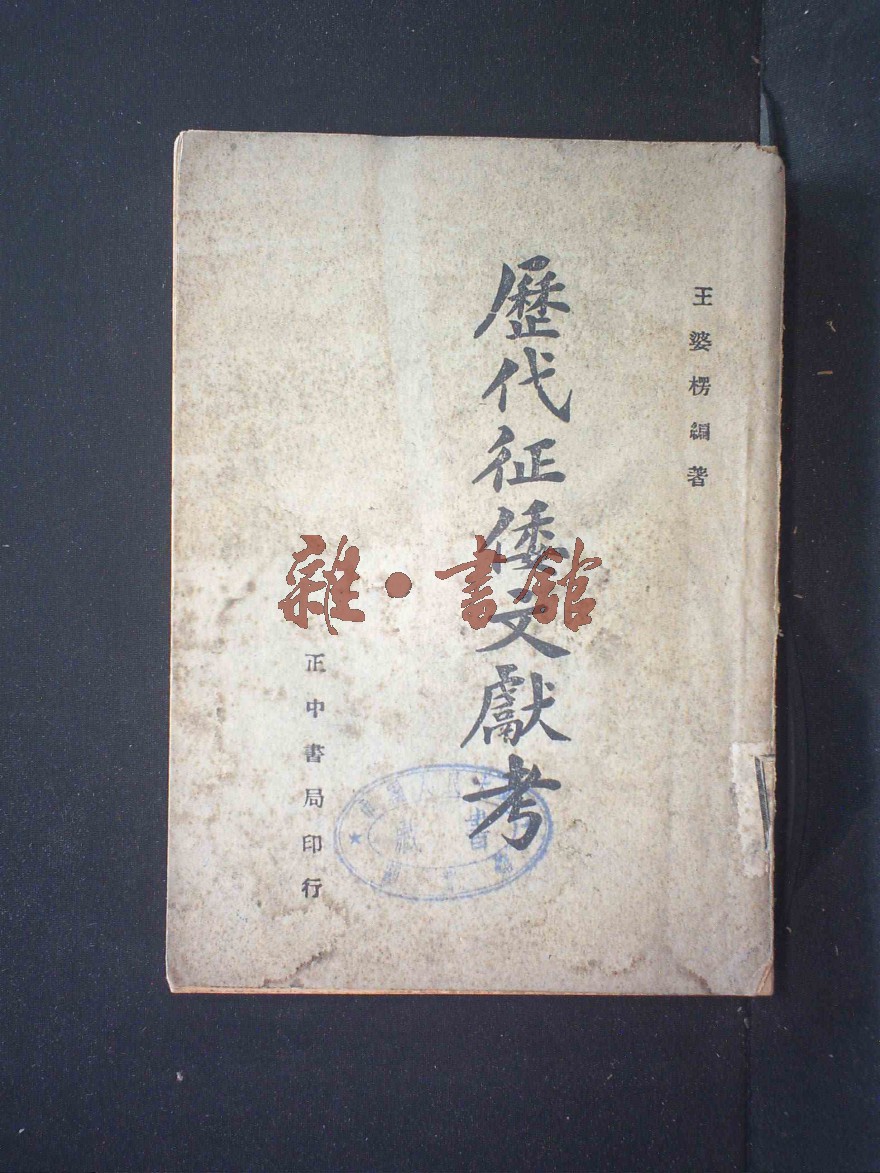 王婆楞編著
歷代征倭文獻考
正中書局印行
雜·書館
藏書